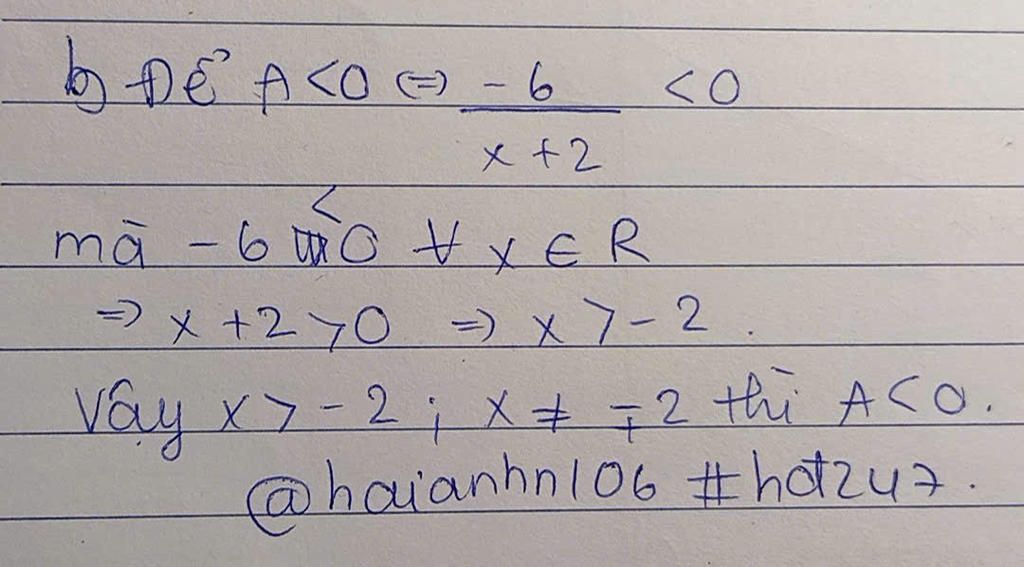 b) Để A < 0 ⇔ -6 / x + 2 < 0
mà - 6 < 0 ∀ x ∈ R
⇒ x + 2 > 0 ⇒ x > - 2 .
Vậy x > - 2 ; x ≠ ∓ 2 thì A < 0 .
@haianhn106 #hđ247 .